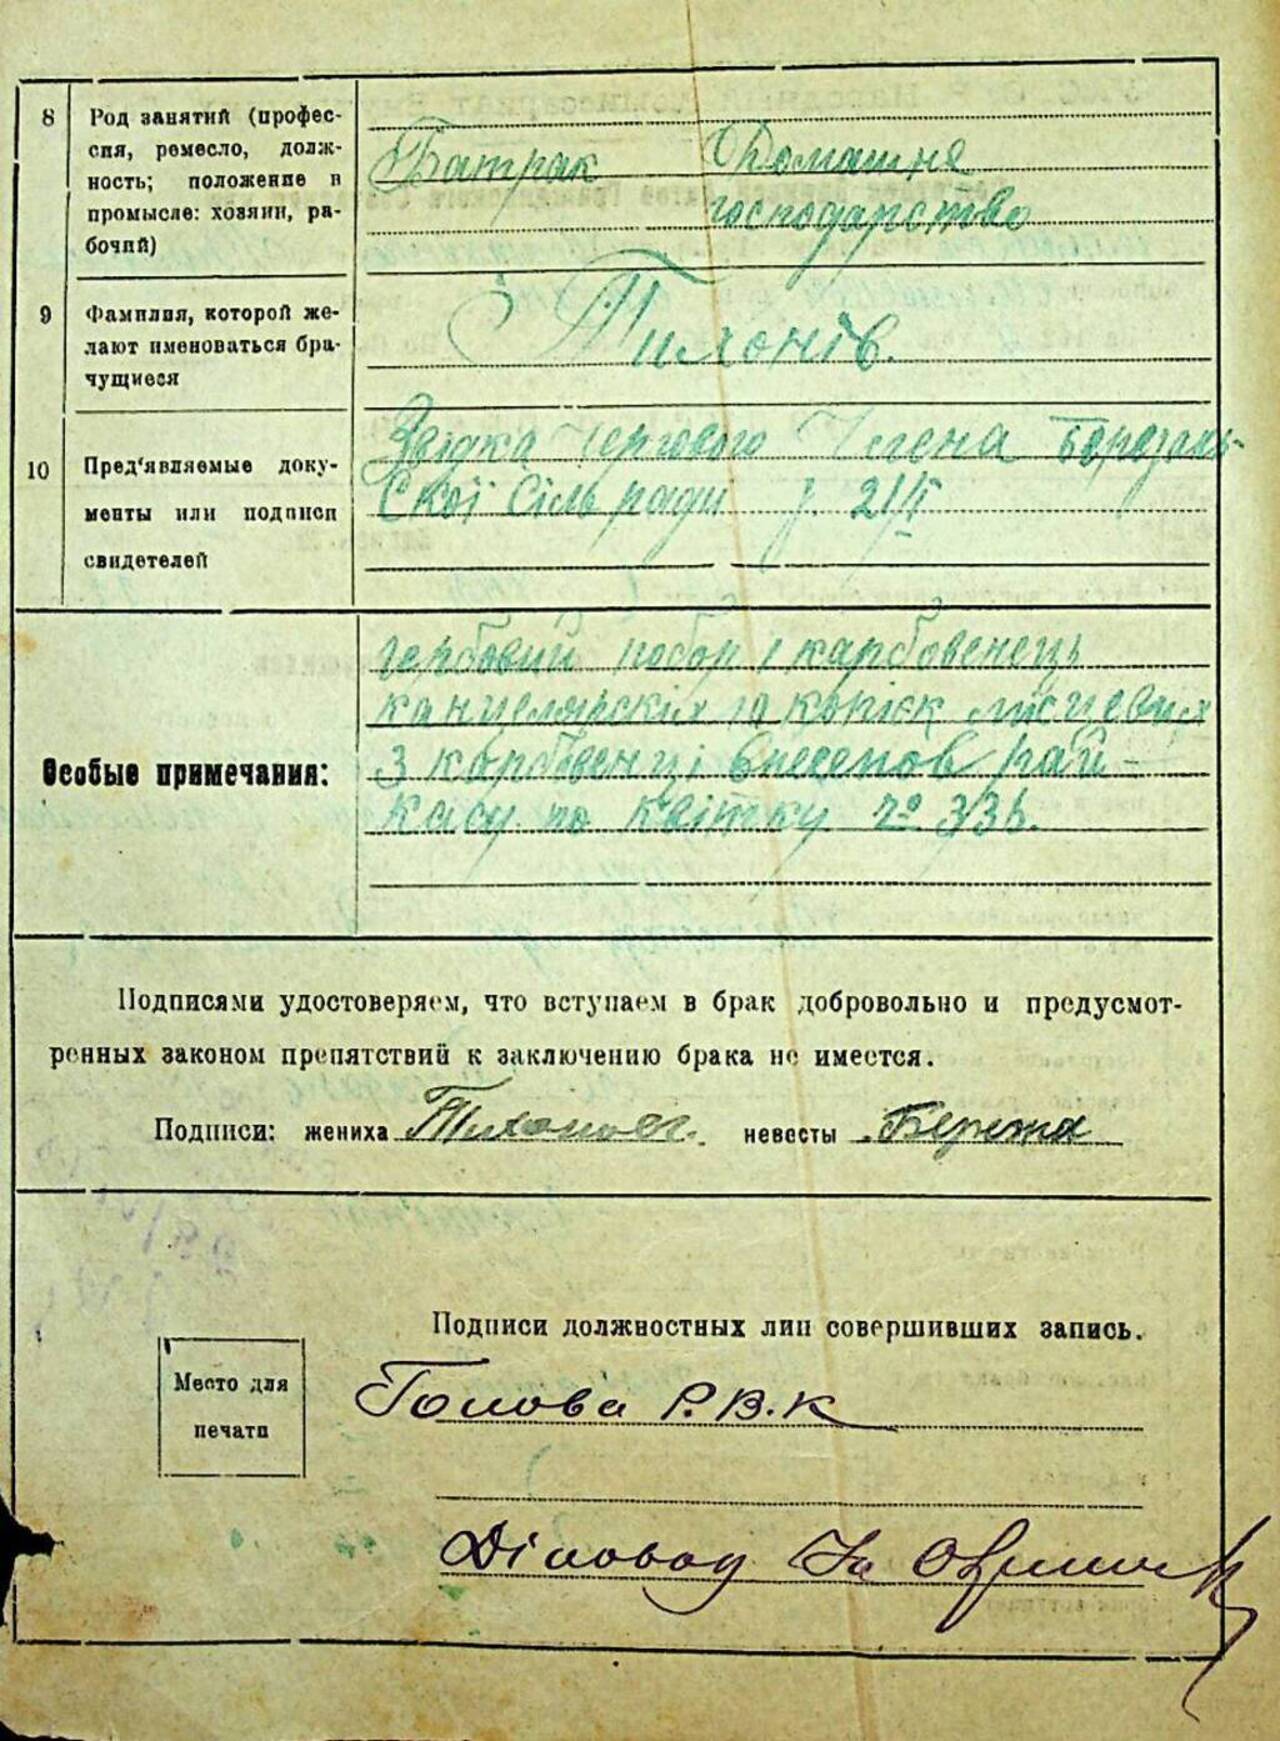 8 Род занятий (профес-
сия, ремесло, долж-
ность; положение в
промысле: хозяин, ра-
бочий)
Батрак Домашне
господарство
9 Фамилия, которой же-
лают именоваться бра-
чущиеся
Тихонів.
10 Пред'являемые доку-
менты или подписи
свидетелей
Звідка Чергового Члена Березан-
Ської Сільради з. 21/I
Особые примечания:
гербовий побор 1 карбовенець
канцелярских 10 копієк місцевих
3 карбовенці внесенов рай-
касу по квітку № 336.
Подписями удостоверяем, что вступаем в брак добровольно и предусмот-
ренных законом препятствий к заключению брака не имеется.
Подписи: жениха Тихонов. невесты Бережа
Подписи должностных лиц совершивших запись.
Место для
печати
Голова Р.В.К
Діловод